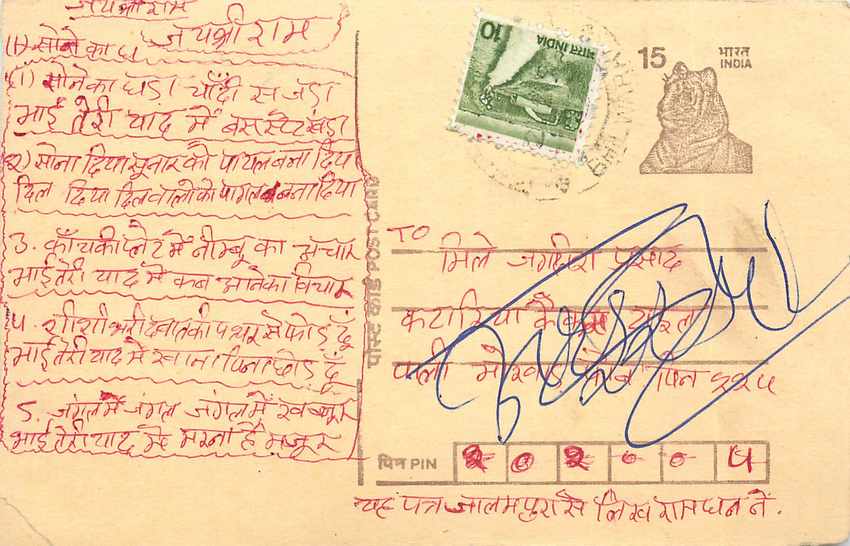 जयश्रीराम
(1) सोने का घ
जयश्रीराम
(1) सोनेका घड़ा चाँदी स जड़ा
भाई तेरी याद में बस स्टेट खड़ा
2) सोना दिया सुनार को पायल बना दिया
दिल दिया दिलवालो को पागल बना दिया
3. काँचकी प्लेट में नीम्बू का अचार
भाई तेरी याद में कब आनेका विचार
4. शीशी भरी दवात की पत्थर से फोड दूँ
भाई तेरी याद में खाना पिना छोड दूँ
5. जंगल में जंगल जंगल में खज्जूर
भाई तेरी याद में मरना है मजूर
पोस्ट कार्ड POST CARD
भारत INDIA
10
15
भारत
INDIA
TO
मिले जगदीश प्रसाद
कटारिया
पाली पिन
पिन PIN
2 0 2 0 0 4
यह पत्र जालमपुरा से लिख रामधन ने.